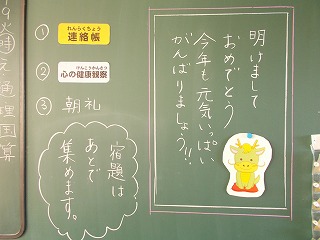 ①
れんらくちょう
連絡帳
②
けんこうかんさつ
心の健康観察
③ 朝礼
明けまして
おめでとう
今年も元気いっぱい
がんばりましょう!!
宿題は
あとで
集めます。
理
国
算